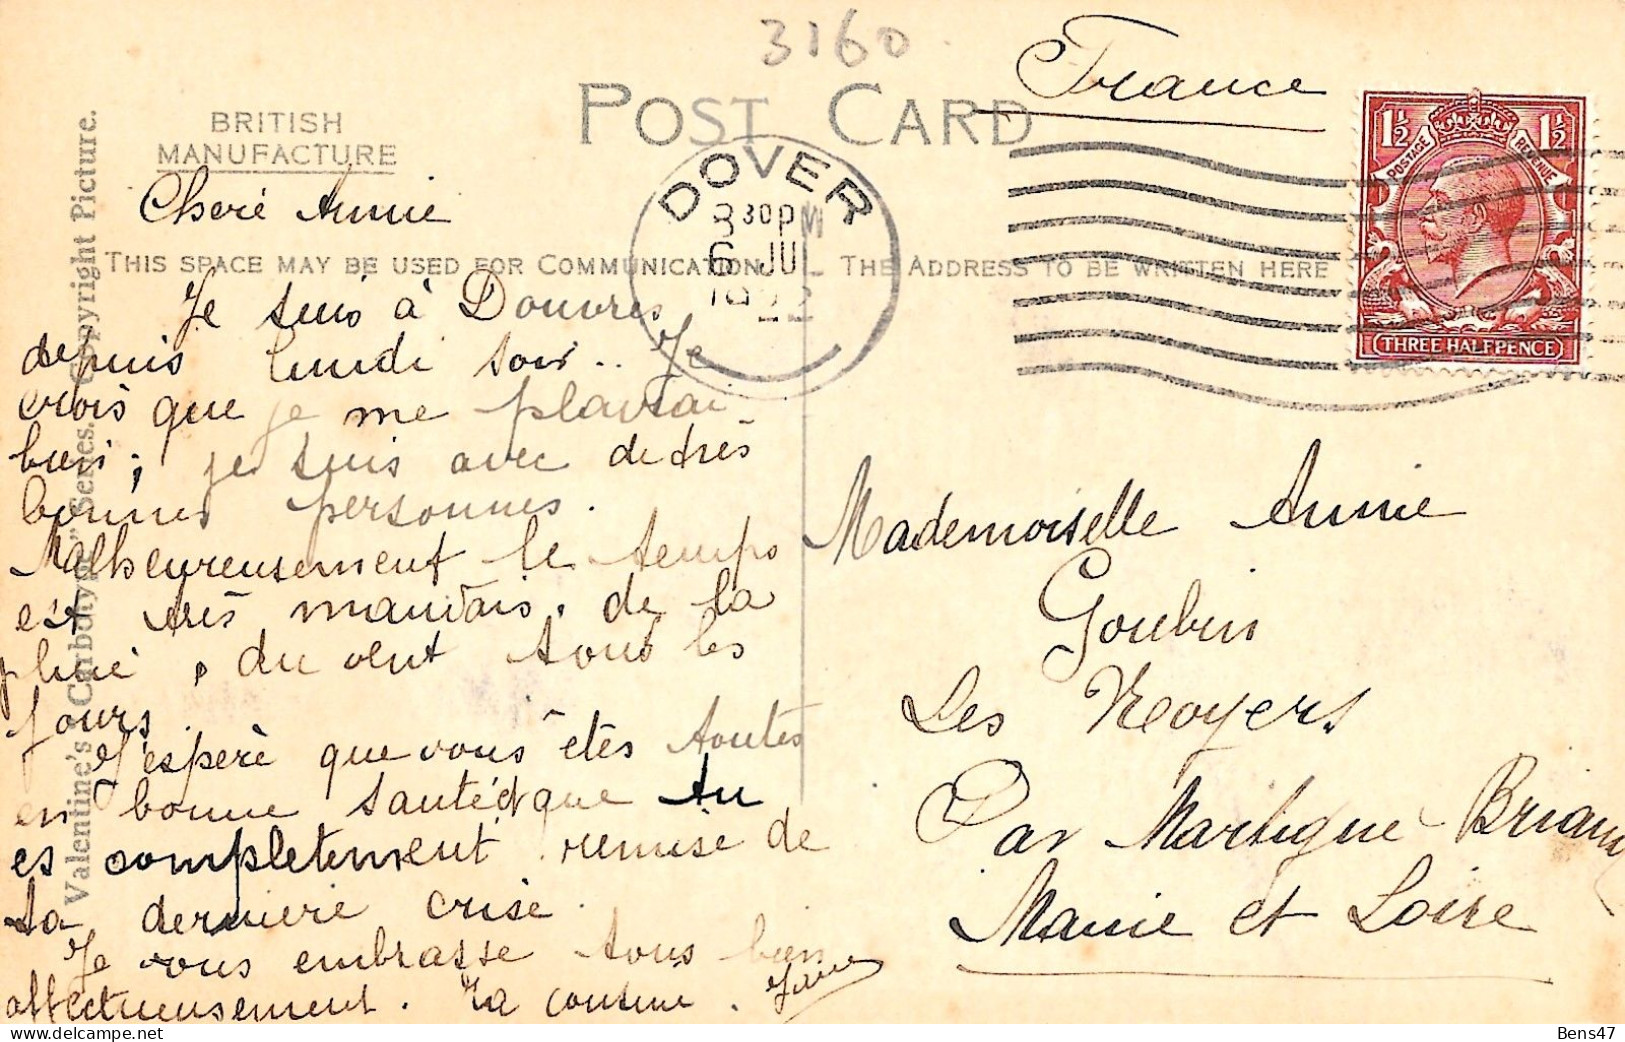 3160
France
POST CARD
BRITISH
MANUFACTURE
1½ 1½
POSTAGE REVENUE
THREE HALFPENCE
DOVER
30 PM
6 JUL
Valentine's "Carbotype" Series. Copyright Picture.
Cheré Annie
THIS SPACE MAY BE USED FOR COMMUNICATION
THE ADDRESS TO BE WRITTEN HERE
Je suis à Douvres
depuis lundi soir.. Je
crois que je me plairai
bien; je suis avec de très
bonnes personnes.
Malheureusement le temps
est très mauvais. de la
pluie, du vent tous les
jours.
J'espère que vous êtes toutes
en bonne santé et que tu
es complètement remise de
ta dernière crise.
Je vous embrasse tous bien
affectueusement. Ta cousine.
Mademoiselle Annie
Goubin
Les Noyers
Par Martigné-Briand
Maine et Loire
Bens47